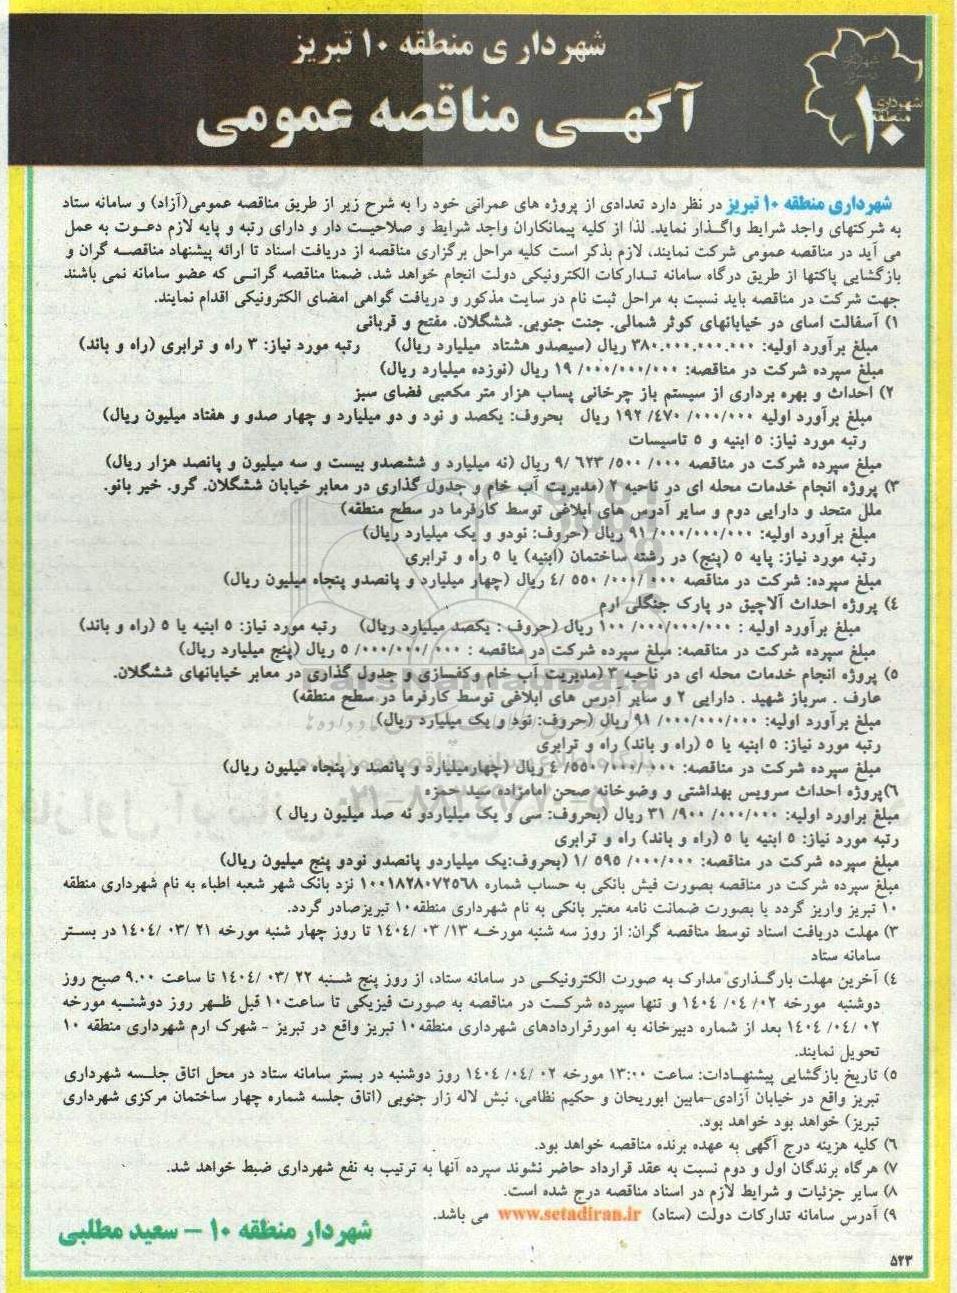 شهرداری منطقه ۱۰
شهرداری منطقه ۱۰ تبریز
آگهی مناقصه عمومی
شهرداری منطقه ۱۰ تبریز در نظر دارد تعدادی از پروژه های عمرانی خود را به شرح زیر از طریق مناقصه عمومی(آزاد) و سامانه ستاد
به شرکتهای واجد شرایط واگذار نماید. لذا از کلیه پیمانکاران واجد شرایط و صلاحیت دار و دارای رتبه و پایه لازم دعوت به عمل
می آید در مناقصه عمومی شرکت نمایند، لازم بذکر است کلیه مراحل برگزاری مناقصه از دریافت اسناد تا ارائه پیشنهاد مناقصه گران و
بازگشایی پاکتها از طریق درگاه سامانه تدارکات الکترونیکی دولت انجام خواهد شد، ضمنا مناقصه گرانی که عضو سامانه نمی باشند
جهت شرکت در مناقصه باید نسبت به مراحل ثبت نام در سایت مذکور و دریافت گواهی امضای الکترونیکی اقدام نمایند.
۱) آسفالت اسای در خیابانهای کوثر شمالی. جنت جنوبی. ششگلان. مفتح و قربانی
مبلغ برآورد اولیه: ۳۸۰.۰۰۰.۰۰۰.۰۰۰ ریال (سیصدو هشتاد میلیارد ریال) رتبه مورد نیاز: ۳ راه و ترابری (راه و باند)
مبلغ سپرده شرکت در مناقصه: ۱۹/۰۰۰/۰۰۰/۰۰۰ ریال (نوزده میلیارد ریال)
۲) احداث و بهره برداری از سیستم باز چرخانی پساب هزار متر مکعبی فضای سبز
مبلغ برآورد اولیه ۱۹۲/۴۷۰/۰۰۰/۰۰۰ ریال بحروف: یکصد و نود و دو میلیارد و چهار صدو و هفتاد میلیون ریال)
رتبه مورد نیاز: ۵ ابنیه و ۵ تاسیسات
مبلغ سپرده شرکت در مناقصه ۹/۶۲۳/۵۰۰/۰۰۰ ریال (نه میلیارد و ششصدو بیست و سه میلیون و پانصد هزار ریال)
۳) پروژه انجام خدمات محله ای در ناحیه ۲ (مدیریت آب خام و جدول گذاری در معابر خیابان ششگلان. گرو. خیر بانو.
ملل متحد و دارایی دوم و سایر آدرس های ابلاغی توسط کارفرما در سطح منطقه)
مبلغ برآورد اولیه: ۹۱/۰۰۰/۰۰۰/۰۰۰ ریال (حروف: نودو و یک میلیارد ریال)
رتبه مورد نیاز: پایه ۵ (پنج) در رشته ساختمان (ابنیه) یا ۵ راه و ترابری
مبلغ سپرده: شرکت در مناقصه ۴/۵۵۰/۰۰۰/۰۰۰ ریال (چهار میلیارد و پانصدو پنجاه میلیون ریال)
۴) پروژه احداث آلاچیق در پارک جنگلی ارم
مبلغ برآورد اولیه : ۱۰۰/۰۰۰/۰۰۰/۰۰۰ ریال (حروف : یکصد میلیارد ریال) رتبه مورد نیاز: ۵ ابنیه یا ۵ (راه و باند)
مبلغ سپرده شرکت در مناقصه: مبلغ سپرده شرکت در مناقصه : ۵/۰۰۰/۰۰۰/۰۰۰ ریال (پنج میلیارد ریال)
۵) پروژه انجام خدمات محله ای در ناحیه ۳ (مدیریت آب خام وکفسازی و جدول گذاری در معابر خیابانهای ششگلان.
عارف . سرباز شهید . دارایی ۲ و سایر آدرس های ابلاغی توسط کارفرما در سطح منطقه)
مبلغ برآورد اولیه: ۹۱/۰۰۰/۰۰۰/۰۰۰ ریال (حروف: نود و یک میلیارد ریال)
رتبه مورد نیاز: ۵ ابنیه یا ۵ (راه و باند) راه و ترابری
مبلغ سپرده شرکت در مناقصه: ۴/۵۵۰/۰۰۰/۰۰۰ ریال (چهارمیلیارد و پانصد و پنجاه میلیون ریال)
۶)پروژه احداث سرویس بهداشتی و وضوخانه صحن امامزاده سید حمزه
مبلغ براورد اولیه: ۳۱/۹۰۰/۰۰۰/۰۰۰ ریال (بحروف: سی و یک میلیاردو نه صد میلیون ریال )
رتبه مورد نیاز: ۵ ابنیه یا ۵ (راه و باند) راه و ترابری
مبلغ سپرده شرکت در مناقصه: ۱/۵۹۵/۰۰۰/۰۰۰ (بحروف:یک میلیاردو پانصدو نودو پنج میلیون ریال)
مبلغ سپرده شرکت در مناقصه بصورت فیش بانکی به حساب شماره ۱۰۰۱۸۲۸۰۷۲۵۶۸ نزد بانک شهر شعبه اطباء به نام شهرداری منطقه
۱۰ تبریز واریز گردد یا بصورت ضمانت نامه معتبر بانکی به نام شهرداری منطقه۱۰ تبریزصادر گردد.
۳) مهلت دریافت اسناد توسط مناقصه گران: از روز سه شنبه مورخه ۱۳/ ۰۳/ ۱۴۰۴ تا روز چهار شنبه مورخه ۲۱ /۰۳ /۱۴۰۴ در بستر
سامانه ستاد
۴) آخرین مهلت بارگذاری مدارک به صورت الکترونیکی در سامانه ستاد، از روز پنج شنبه ۲۲ /۰۳ /۱۴۰۴ تا ساعت ۹.۰۰ صبح روز
دوشنبه مورخه ۰۲/ ۰۴/ ۱۴۰۴ و تنها سپرده شرکت در مناقصه به صورت فیزیکی تا ساعت۱۰ قبل ظهر روز دوشنبه مورخه
۰۲ /۰۴/ ۱۴۰۴ بعد از شماره دبیرخانه به امورقراردادهای شهرداری منطقه۱۰ تبریز واقع در تبریز - شهرک ارم شهرداری منطقه ۱۰
تحویل نمایند.
۵) تاریخ بازگشایی پیشنهادات: ساعت ۱۳:۰۰ مورخه ۰۲ /۰۴/ ۱۴۰۴ روز دوشنبه در بستر سامانه ستاد در محل اتاق جلسه شهرداری
تبریز واقع در خیابان آزادی-مابین ابوریحان و حکیم نظامی، نبش لاله زار جنوبی (اتاق جلسه شماره چهار ساختمان مرکزی شهرداری
تبریز) خواهد بود خواهد بود.
۶) کلیه هزینه درج آگهی به عهده برنده مناقصه خواهد بود.
۷) هرگاه برندگان اول و دوم نسبت به عقد قرارداد حاضر نشوند سپرده آنها به ترتیب به نفع شهرداری ضبط خواهد شد.
۸) سایر جزئیات و شرایط لازم در اسناد مناقصه درج شده است.
۹) آدرس سامانه تدارکات دولت (ستاد) www.setadiran.ir می باشد.
شهردار منطقه ۱۰ – سعید مطلبی
۵۲۳